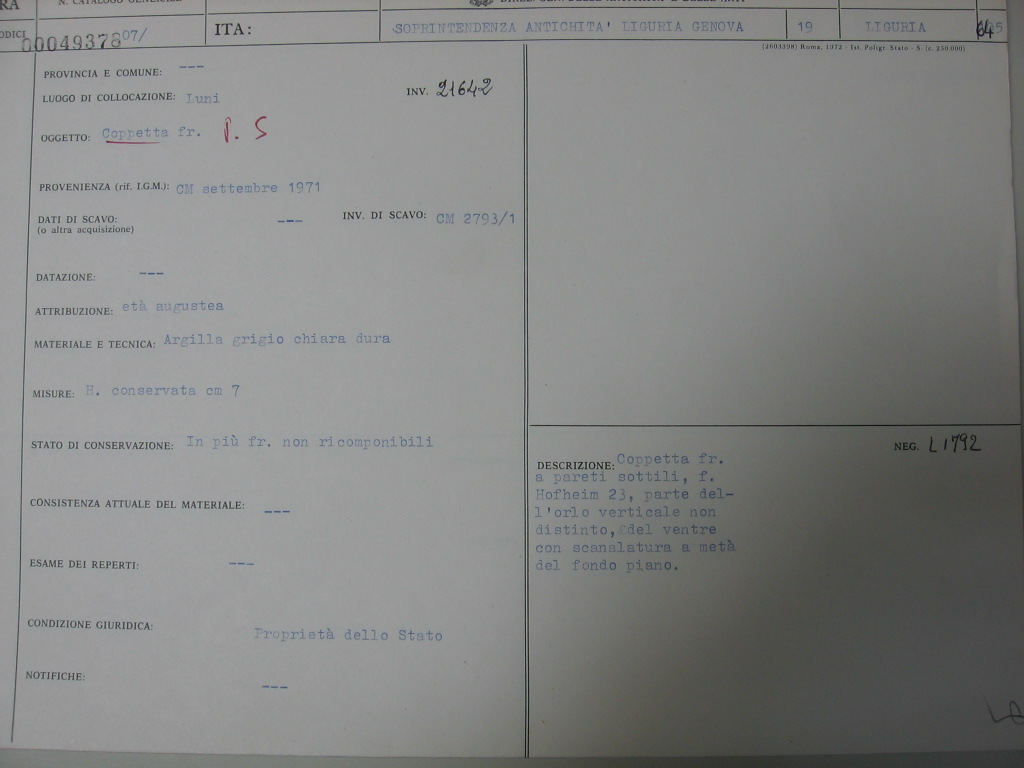 RA
N. CATALOGO GENERALE
ODICI
00049378 07/
ITA:
SOPRINTENDENZA ANTICHITA' LIGURIA GENOVA
19
LIGURIA
64
(2603398) Roma, 1972 - Ist. Poligr. Stato - S. (c. 250.000)
PROVINCIA E COMUNE: ---
LUOGO DI COLLOCAZIONE: Luni
INV. 21642
OGGETTO: Coppetta fr. P. S
PROVENIENZA (rif. I.G.M.): CM settembre 1971
DATI DI SCAVO: --- INV. DI SCAVO: CM 2793/1
(o altra acquisizione)
DATAZIONE: ---
ATTRIBUZIONE: età augustea
MATERIALE E TECNICA: Argilla grigio chiara dura
MISURE: H. conservata cm 7
STATO DI CONSERVAZIONE: In più fr. non ricomponibili
CONSISTENZA ATTUALE DEL MATERIALE: ---
ESAME DEI REPERTI: ---
CONDIZIONE GIURIDICA: Proprietà dello Stato
NOTIFICHE: ---
NEG. L1792
DESCRIZIONE: Coppetta fr.
a pareti sottili, f.
Hofheim 23, parte del-
l'orlo verticale non
distinto, del ventre
con scanalatura a metà
del fondo piano.